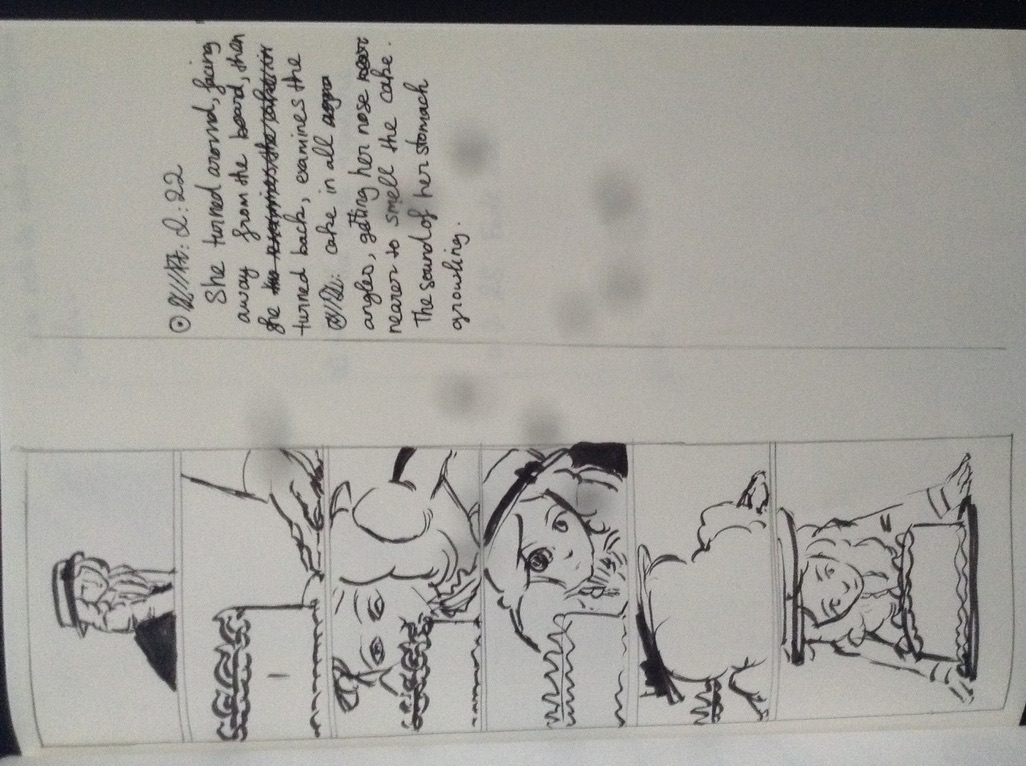 2:22
She turned around, facing
away from the board, then
she
turned back, examines the
cake in all
angles, getting her nose
nearer to smell the cake.
The sound of her stomach
growling.